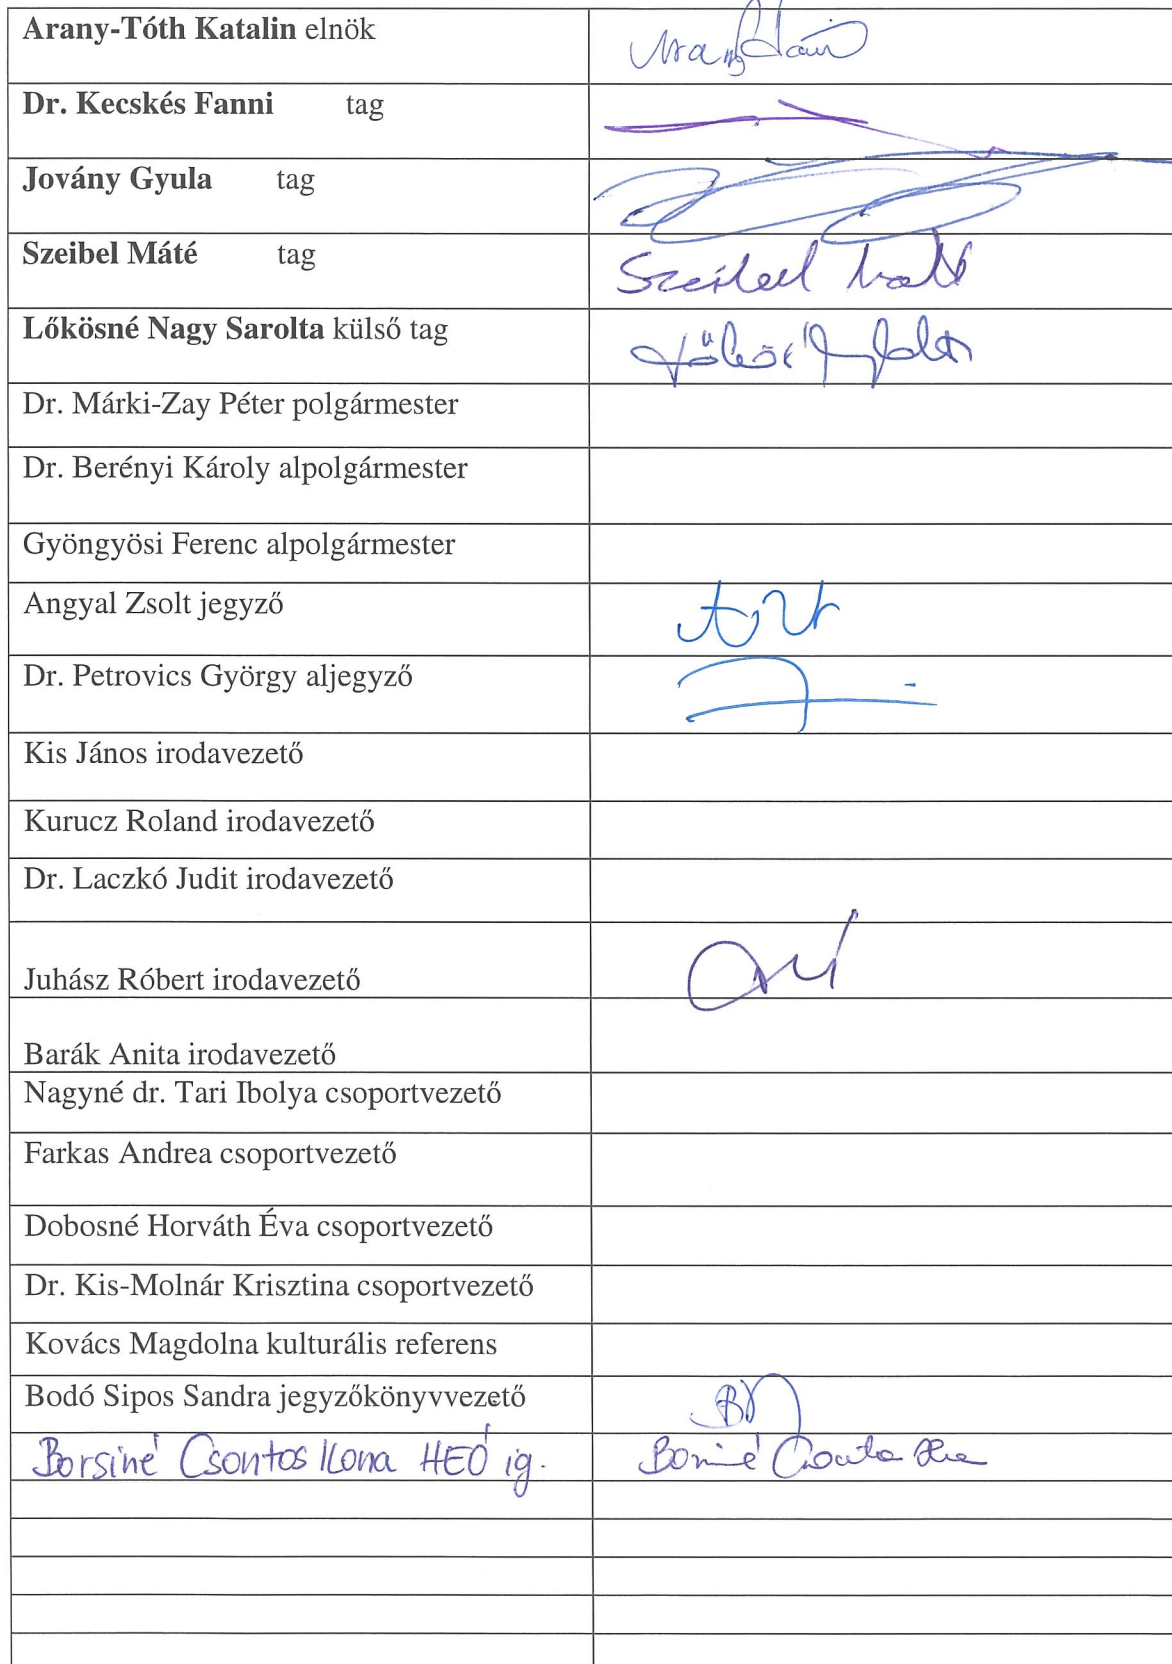 Arany-Tóth Katalin elnök
Dr. Kecskés Fanni tag
Jovány Gyula tag
Szeibel Máté tag Szeibel Máté
Lőkösné Nagy Sarolta külső tag
Dr. Márki-Zay Péter polgármester
Dr. Berényi Károly alpolgármester
Gyöngyösi Ferenc alpolgármester
Angyal Zsolt jegyző
Dr. Petrovics György aljegyző
Kis János irodavezető
Kurucz Roland irodavezető
Dr. Laczkó Judit irodavezető
Juhász Róbert irodavezető
Barák Anita irodavezető
Nagyné dr. Tari Ibolya csoportvezető
Farkas Andrea csoportvezető
Dobosné Horváth Éva csoportvezető
Dr. Kis-Molnár Krisztina csoportvezető
Kovács Magdolna kulturális referens
Bodó Sipos Sandra jegyzőkönyvvezető
Borsiné Csontos Ilona HEÓ ig.